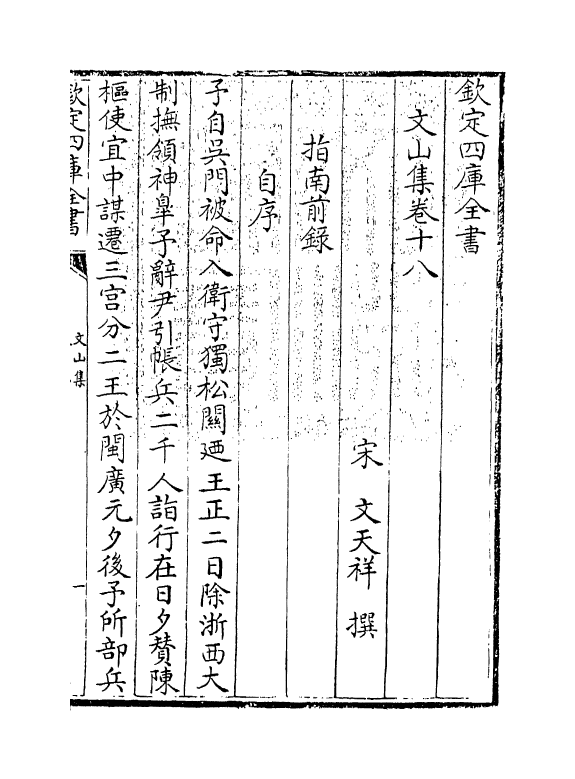 欽定四庫全書
文山集卷十八
宋 文天祥 撰
指南前錄
自序
予自吳門被命入衛守獨松關廼王正二日除浙西大
制撫領神臯予辭尹引帳兵二千人詣行在日夕賛陳
樞使宜中謀遷三宫分二王於閩廣元夕後予所部兵
欽定四庫全書
文山集
一